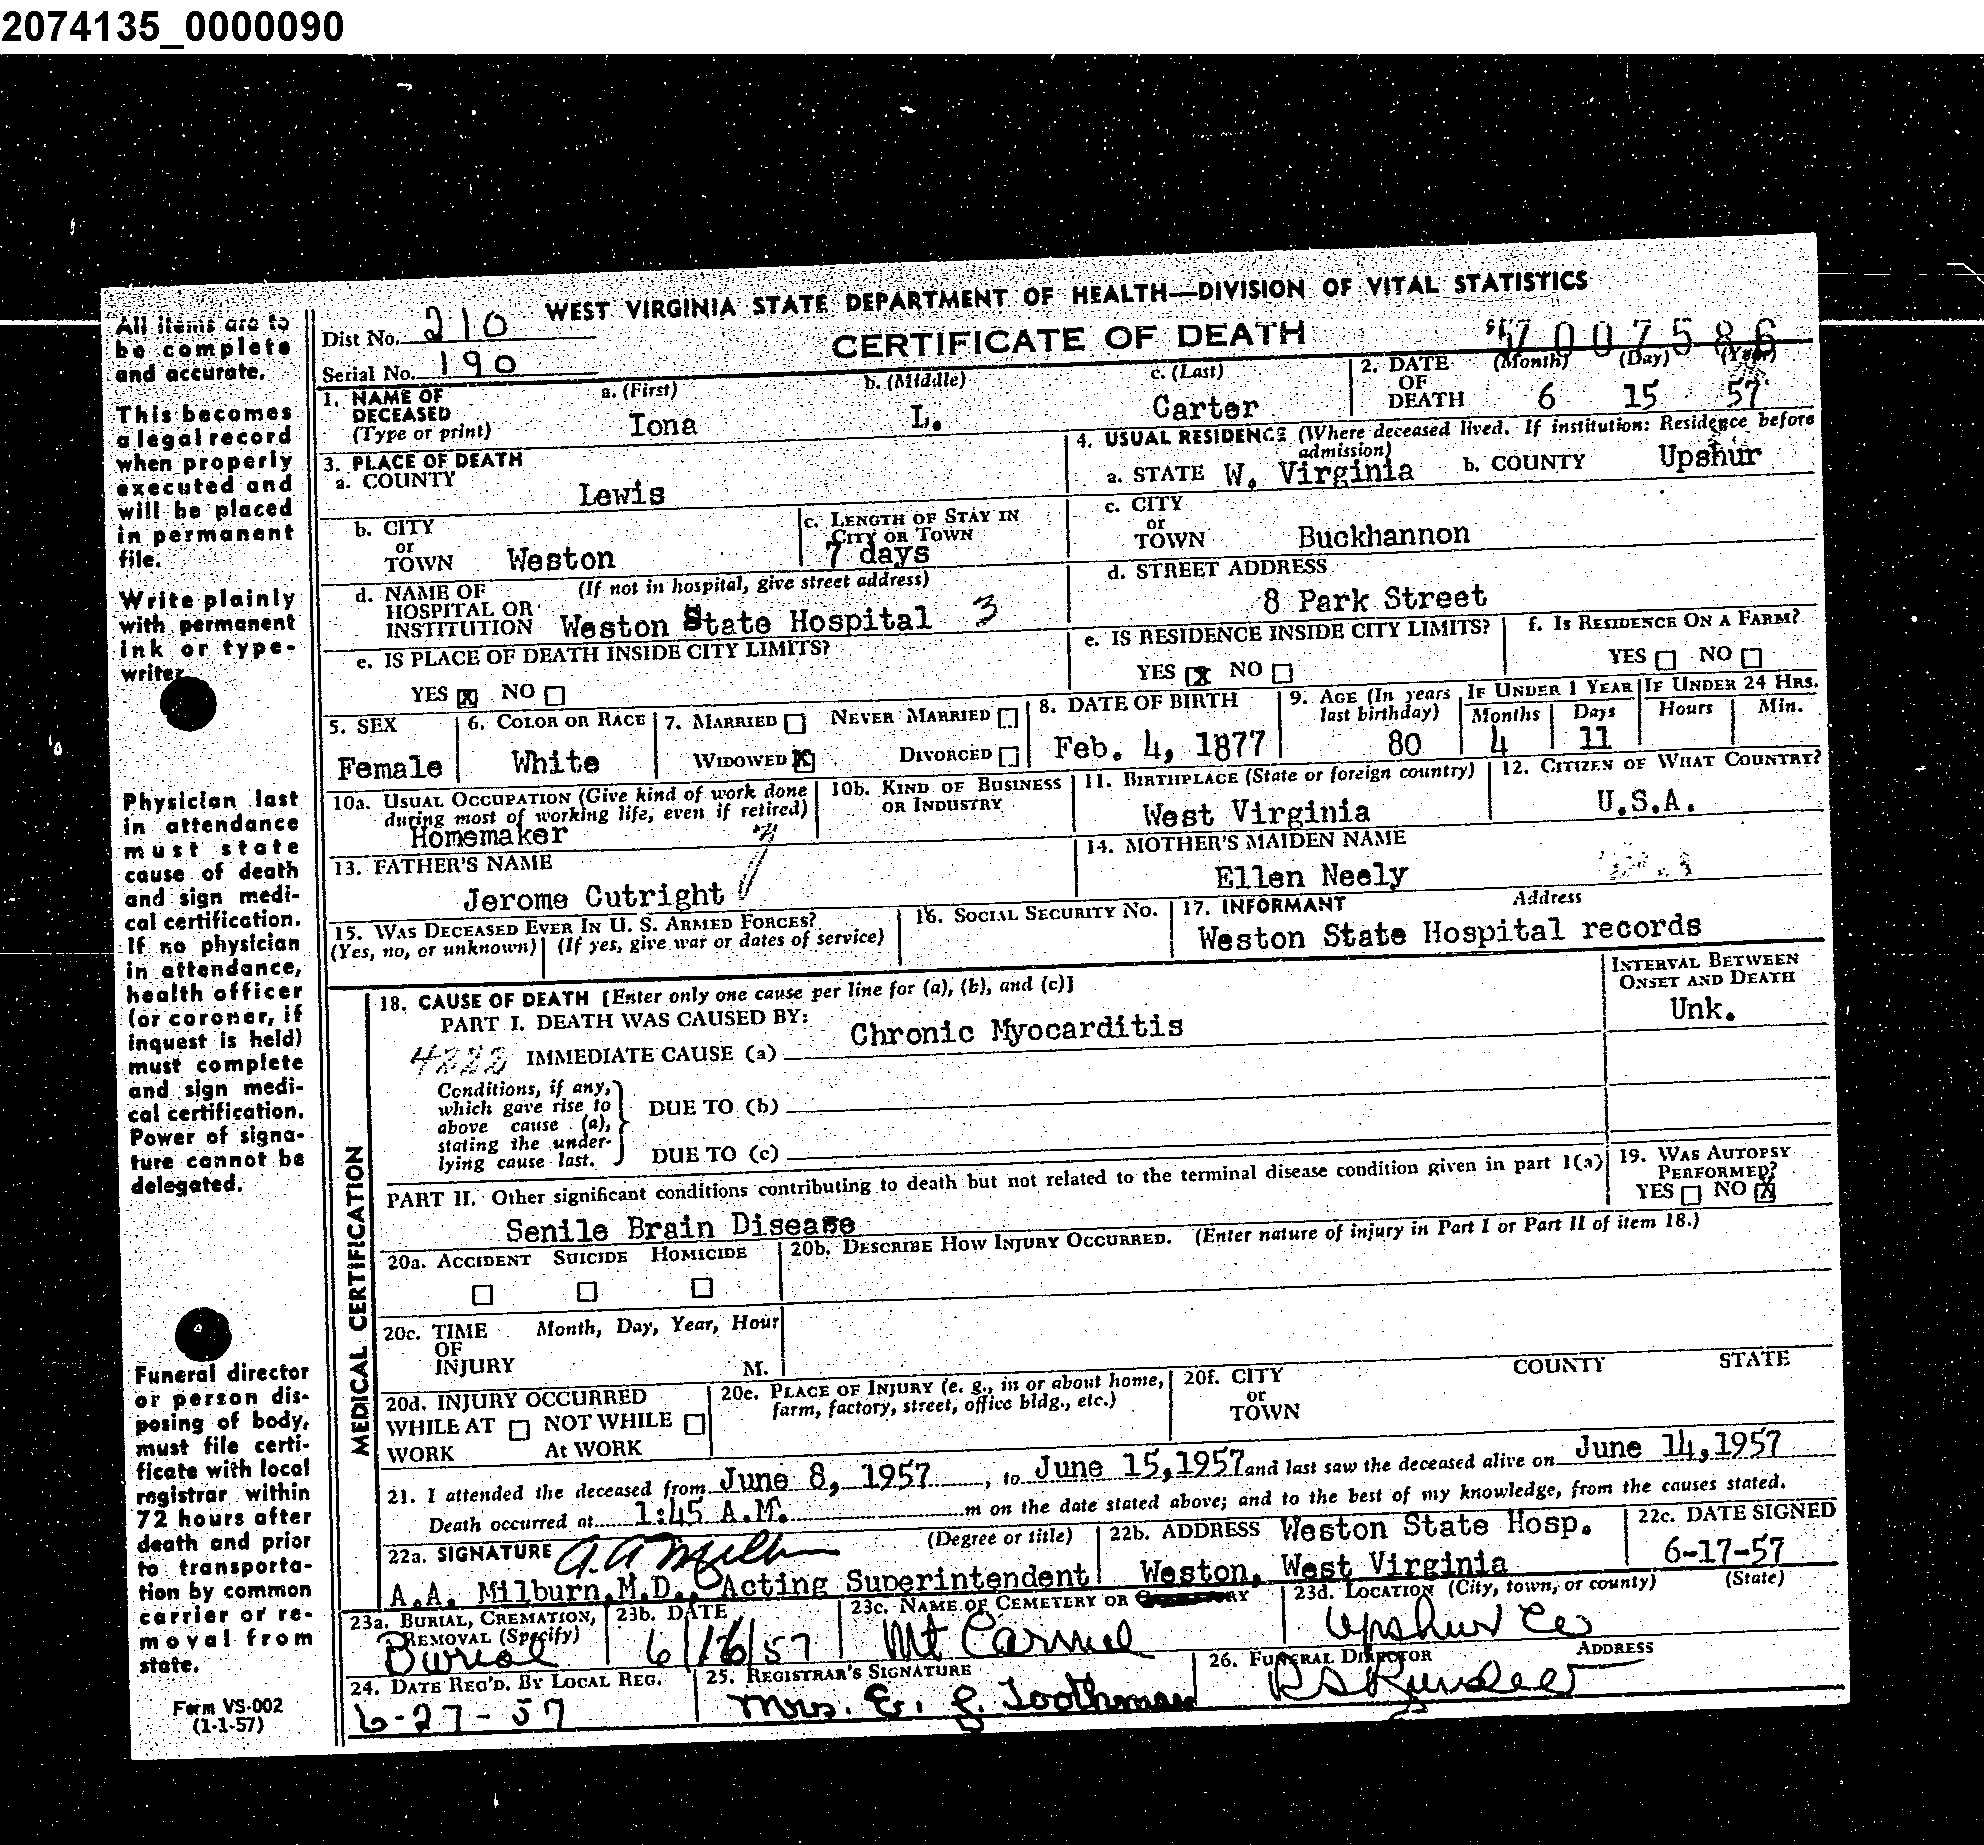 2074135_0000090
WEST VIRGINIA STATE DEPARTMENT OF HEALTH—DIVISION OF VITAL STATISTICS
CERTIFICATE OF DEATH
Dist No. 210
Serial No. 190
57 007586
All items are to
be complete
and accurate.
This becomes
a legal record
when properly
executed and
will be placed
in permanent
file.
Write plainly
with permanent
ink or type-
writer
Physician last
in attendance
must state
cause of death
and sign medi-
cal certification.
If no physician
in attendance,
health officer
(or coroner, if
inquest is held)
must complete
and sign medi-
cal certification.
Power of signa-
ture cannot be
delegated.
Funeral director
or person dis-
posing of body,
must file certi-
ficate with local
registrar within
72 hours after
death and prior
to transporta-
tion by common
carrier or re-
moval from
state.
Form VS-002
(1-1-57)
1. NAME OF DECEASED (Type or print)
a. (First) Iona
b. (Middle) L.
c. (Last) Carter
2. DATE OF DEATH (Month) (Day) (Year)
6 15 57
3. PLACE OF DEATH
a. COUNTY Lewis
b. CITY or TOWN Weston
c. LENGTH OF STAY IN CITY OR TOWN
7 days
d. NAME OF HOSPITAL OR INSTITUTION (If not in hospital, give street address)
Weston State Hospital 3
e. IS PLACE OF DEATH INSIDE CITY LIMITS?
YES X NO
4. USUAL RESIDENCE (Where deceased lived. If institution: Residence before admission)
a. STATE W. Virginia b. COUNTY Upshur
c. CITY or TOWN Buckhannon
d. STREET ADDRESS
8 Park Street
e. IS RESIDENCE INSIDE CITY LIMITS?
YES X NO
f. IS RESIDENCE ON A FARM?
YES NO
5. SEX
Female
6. COLOR OR RACE
White
7. MARRIED NEVER MARRIED
WIDOWED X DIVORCED
8. DATE OF BIRTH
Feb. 4, 1877
9. AGE (In years last birthday)
80
IF UNDER 1 YEAR
Months Days
4 11
IF UNDER 24 HRS.
Hours Min.
10a. USUAL OCCUPATION (Give kind of work done during most of working life, even if retired)
Homemaker
10b. KIND OF BUSINESS OR INDUSTRY
11. BIRTHPLACE (State or foreign country)
West Virginia
12. CITIZEN OF WHAT COUNTRY?
U.S.A.
13. FATHER'S NAME
Jerome Cutright
14. MOTHER'S MAIDEN NAME
Ellen Neely
15. WAS DECEASED EVER IN U. S. ARMED FORCES?
(Yes, no, or unknown) (If yes, give war or dates of service)
16. SOCIAL SECURITY NO.
17. INFORMANT Address
Weston State Hospital records
MEDICAL CERTIFICATION
18. CAUSE OF DEATH [Enter only one cause per line for (a), (b), and (c)]
INTERVAL BETWEEN ONSET AND DEATH
PART I. DEATH WAS CAUSED BY:
IMMEDIATE CAUSE (a) Chronic Myocarditis Unk.
Conditions, if any,
which gave rise to
above cause (a),
stating the under-
lying cause last.
DUE TO (b)
DUE TO (c)
PART II. Other significant conditions contributing to death but not related to the terminal disease condition given in part I(a)
Senile Brain Disease
19. WAS AUTOPSY PERFORMED?
YES NO X
20a. ACCIDENT SUICIDE HOMICIDE
20b. DESCRIBE HOW INJURY OCCURRED. (Enter nature of injury in Part I or Part II of item 18.)
20c. TIME OF INJURY Month, Day, Year, Hour
M.
20d. INJURY OCCURRED
WHILE AT WORK NOT WHILE At WORK
20e. PLACE OF INJURY (e. g., in or about home, farm, factory, street, office bldg., etc.)
20f. CITY or TOWN COUNTY STATE
21. I attended the deceased from June 8, 1957, to June 15,1957 and last saw the deceased alive on June 14,1957
Death occurred at 1:45 A.M. m on the date stated above; and to the best of my knowledge, from the causes stated.
22a. SIGNATURE (Degree or title)
A.A. Milburn,M.D., Acting Superintendent
22b. ADDRESS Weston State Hosp.
Weston, West Virginia
22c. DATE SIGNED
6-17-57
23a. BURIAL, CREMATION, REMOVAL (Specify)
Burial
23b. DATE
6/16/57
23c. NAME OF CEMETERY OR
Mt Carmel
23d. LOCATION (City, town, or county) (State)
Upshur Co
24. DATE REC'D. BY LOCAL REG.
6-27-57
25. REGISTRAR'S SIGNATURE
Mrs. E. J. Toothman
26. FUNERAL DIRECTOR ADDRESS